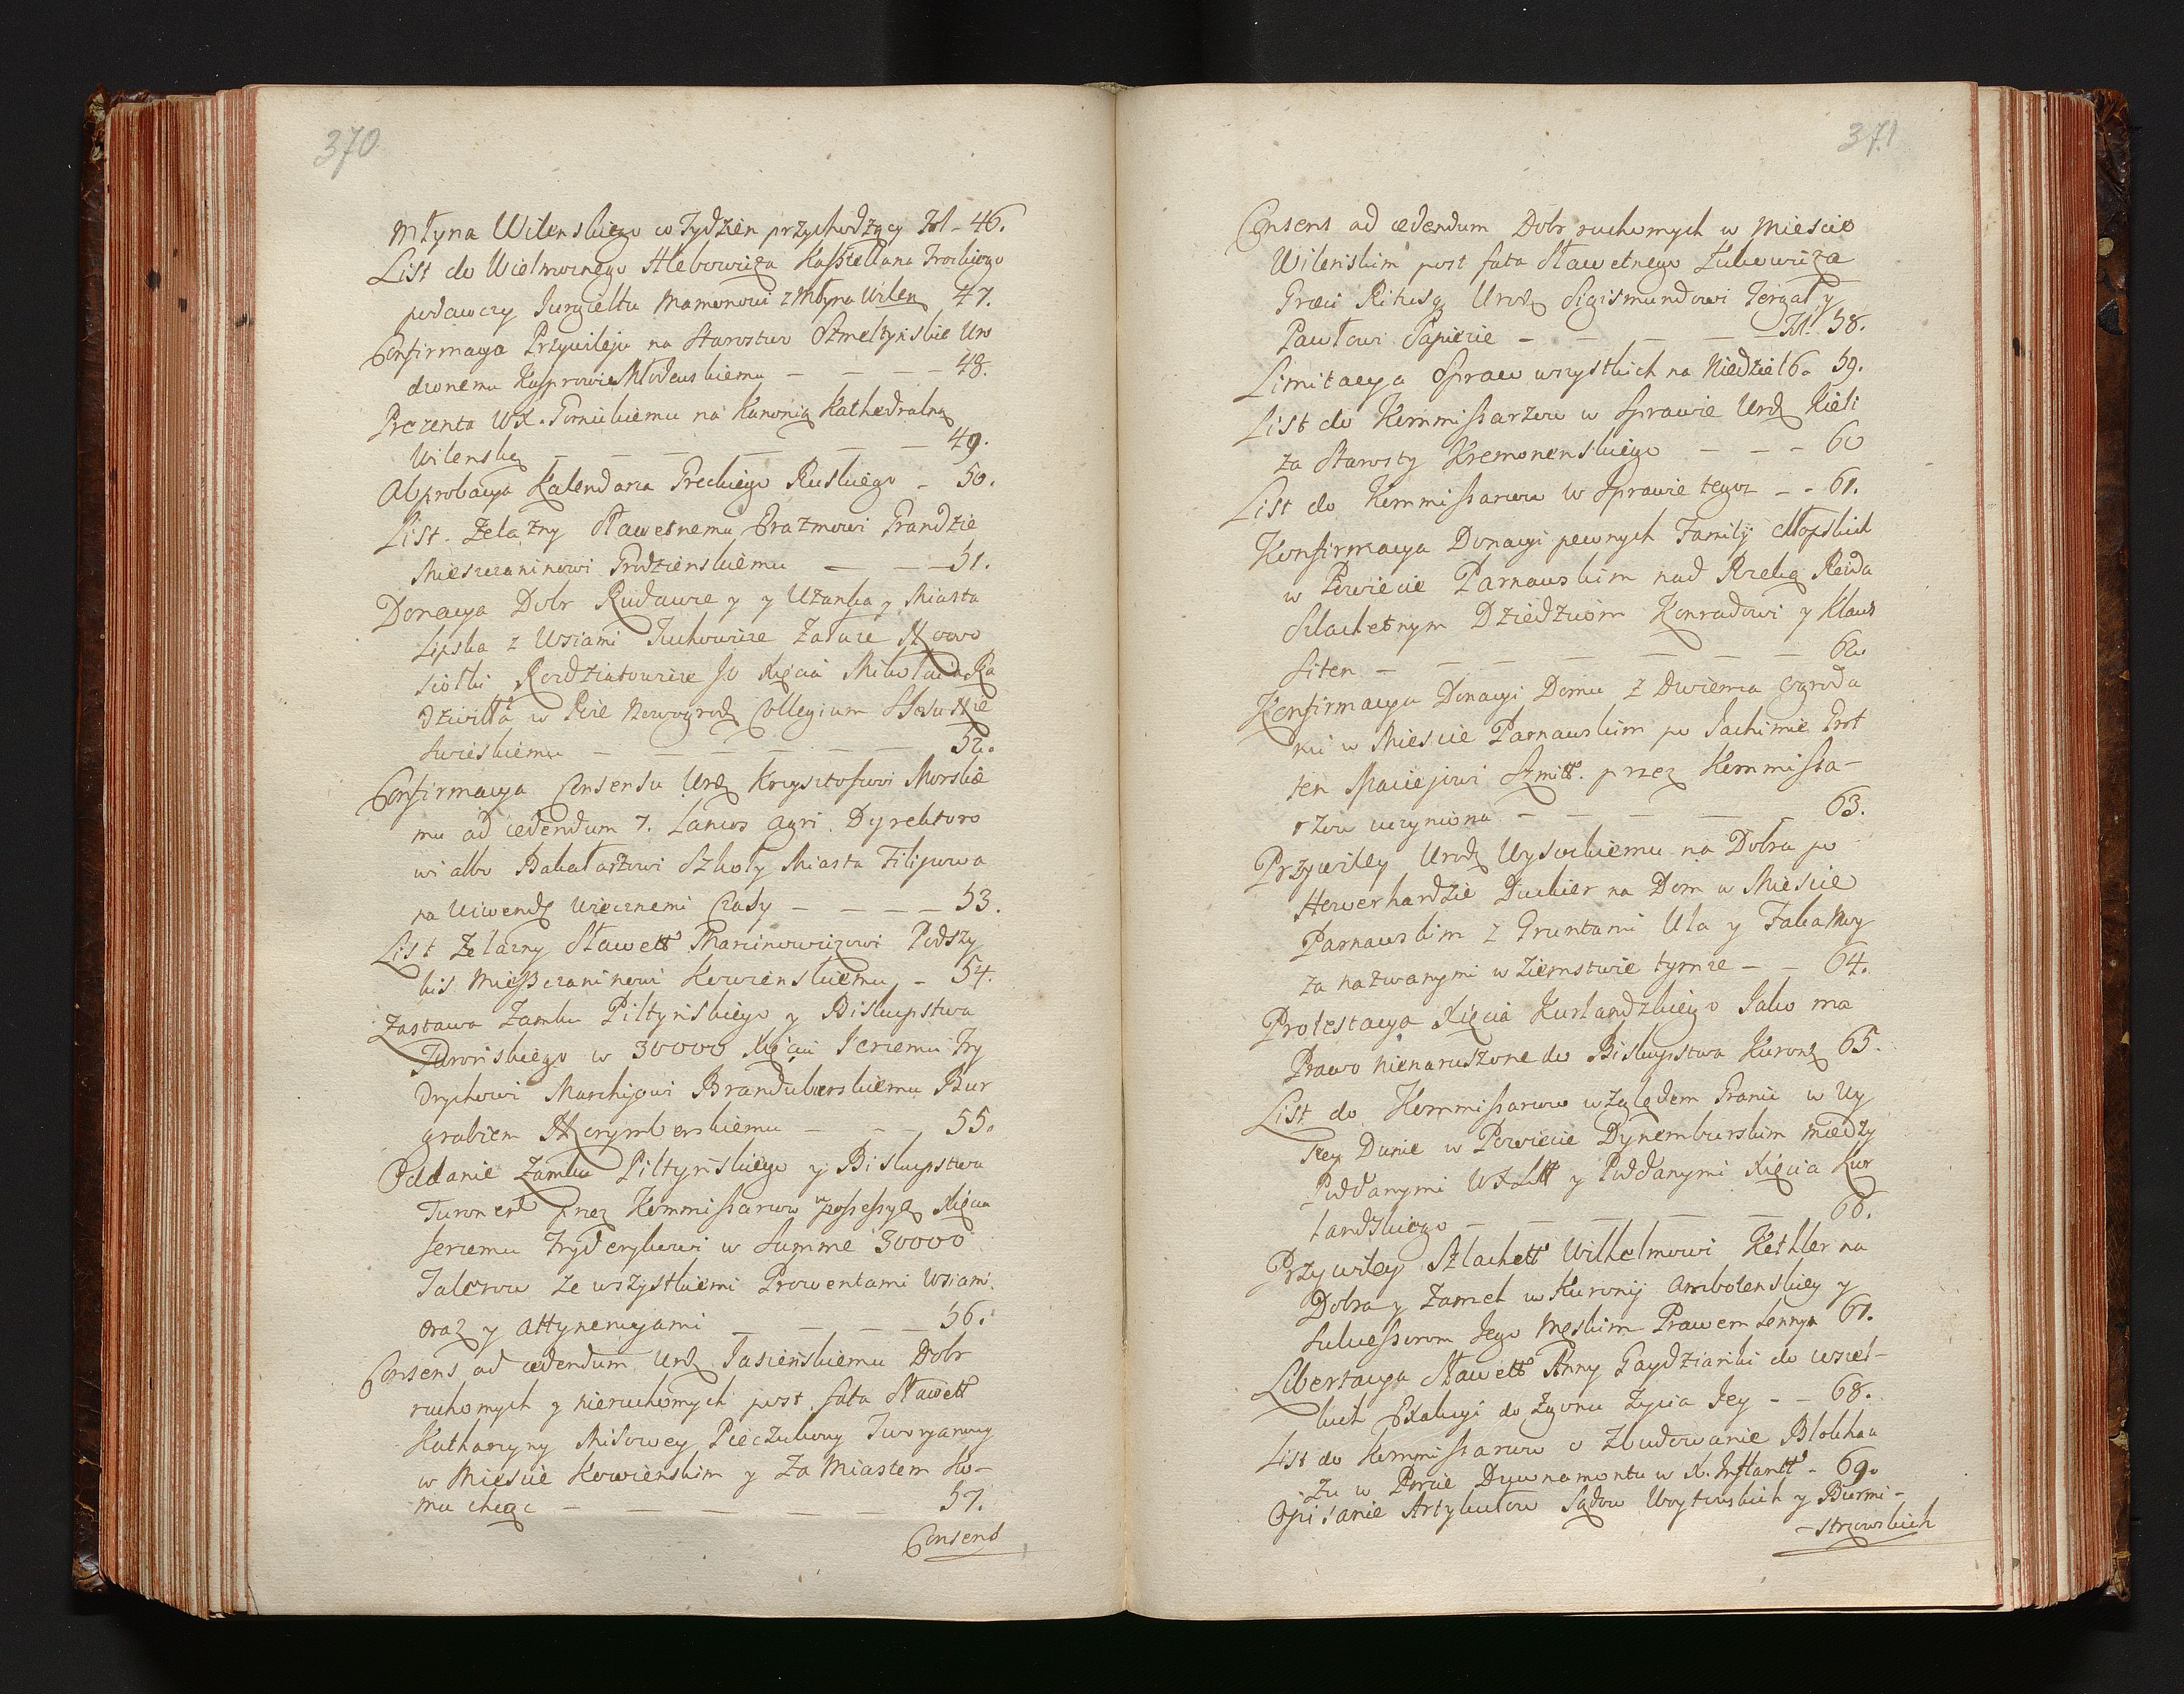 370
Młyna Wilenskiego co Tydzien przychodzący Fol - 46.
List do Wielmoznego Hlebowicza Kasztellana Trockiego
podawczy Jurgieltu Mamonowi z Młyna Wilen 47.
Confirmacya Przywileju na Starostwo Szmeltynskie Uro
dzonemu Kasprowi Młodawskiemu - - - - 48.
Prezenta WX. Gornickiemu na Kanonią Kathedralną
Wilenską - - - - - - 49.
Abprobacya Kalendarza Greckiego Ruskiego - 50.
List Zelazny Sławetnemu Erazmowi Grandzie
Mieszczaninowi Grodzienskiemu - - - 51.
Donacya Dobr Rudawre y y Uzanka y Miasta
Lipska z Wsiami Zaluze Nowo
siołki Kordziatowicze Jo Xięcia Mikołaia Ra
dziwiłła w Pcie Nowogrodz Collegium Nie
swieskiemu - - - - - - - 52.
Confirmacya Consensu Urodz Krysztofowi Morskie
mu ad cedendum 7. Lanos agri Dyrektoro
wi albo Bakałarzowi Szkoły Miasta Filipowa
na Uiwendę wiecznemi Czasy - - - - 53.
List Zelazny Sławett Marcinowiczowi Podszy
kis Mieszczaninowi Kowienskiemu - 54.
Zastawa Zamku Piltynskiego y Biskupstwa
w 30000 Xięciu Jerzemu Fry
drychowi Marchijowi Brandeburskiemu Bur
grabiem Norymberskiemu - - - 55.
Oddanie Zamku Piltynskiego y Biskupstwa
Curonen przez Kommissarzow w possessyę Xięcia
Jerzemu Frydrychowi w Summe 30000
Talerow ze wszystkiemi Prowentami Wsiami
oraz y attynencyami - - - - 56.
Consens ad cedendum Urdz Jasienskiemu Dobr
ruchomych y nieruchomych post fata Sławett
Katharzyny Misowey Pieczulowy Tworyanowy
w Miescie Kowienskim y za Miastem ko-
mu chcąc - - - - - 57.
Consens
371
Consens ad cedendum Dobr ruchomych w Miescie
Wilenskim post fata Sławetnego Łukowicza
Graeci Ritusq Urodz Sigismundowi y
Pawłowi Sapiezie - - - - Fol. 58.
Limitacya Spraw wszystkich na Niedziel 6. 59.
List do Kommissarzow w Sprawie Urdz Kieli
za Starosty Kremonenskiego - - - 60
List do Kommissarzow w Sprawie tegoz - - 61.
Konfirmacya Donacyi pewnych Familij chłopskich
w Powiecie Parnawskim nad Rzeką Reida
Szlachetnym Dziedzicom Konradowi y Klaus
Liten - - - - - - - 62
Konfirmacya Donacyi Domu z Dwiema Ogroda
mi w Miescie Parnawskim po Jachimie Prot
ten Maciejowi Szmitt przez Kommissa-
rzow uczyniona - - - - - 63.
Przywiley Urodz Wysockiemu na Dobra po
Howerhardzie Duckier na Dom w Miescie
Parnawskim z Gruntami Ula y
za nazwanymi w Ziemstwie tymze - - 64.
Protestacya Xięcia Kurlandzkiego Jako ma
Prawo nienaruszone do Biskupstwa Kuronz 65.
List do Kommissarzow względem Granic w Uy
Dunie w Powiecie Dynemburskim między
Poddanymi y Poddanymi Xięcia Kur
landzkiego - - - - - 66.
Przywiley Szlachett Wilhelmowi Kethler na
Dobra y Zamek w Kuronij Ambotenskiey y
Sukcessorom Jego Męskim Prawem Lennym 67.
Libertacya Sławett Anny Gaydzianki do wszel-
kich do Zgonu Zycia Jey - - 68.
List do Kommissarzow o Zbudowanie Blokhau
zu w Porcie Dyunamontu w X. Inflantt - 69.
Opisanie Artykułow Sądow Woytowskich y Burmi-
-strzowskich